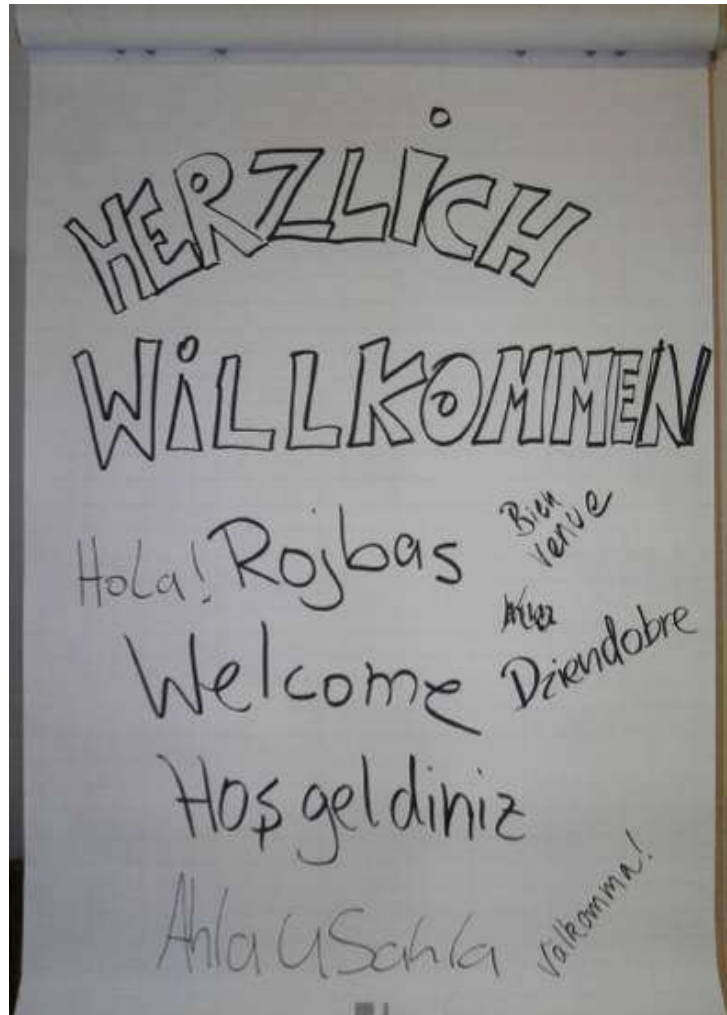 HERZLICH
WILLKOMMEN
Hola! Rojbas
Bien
venue
Welcome
Dziendobre
Hoş geldiniz
Ahla u Sahla
Valkomma!